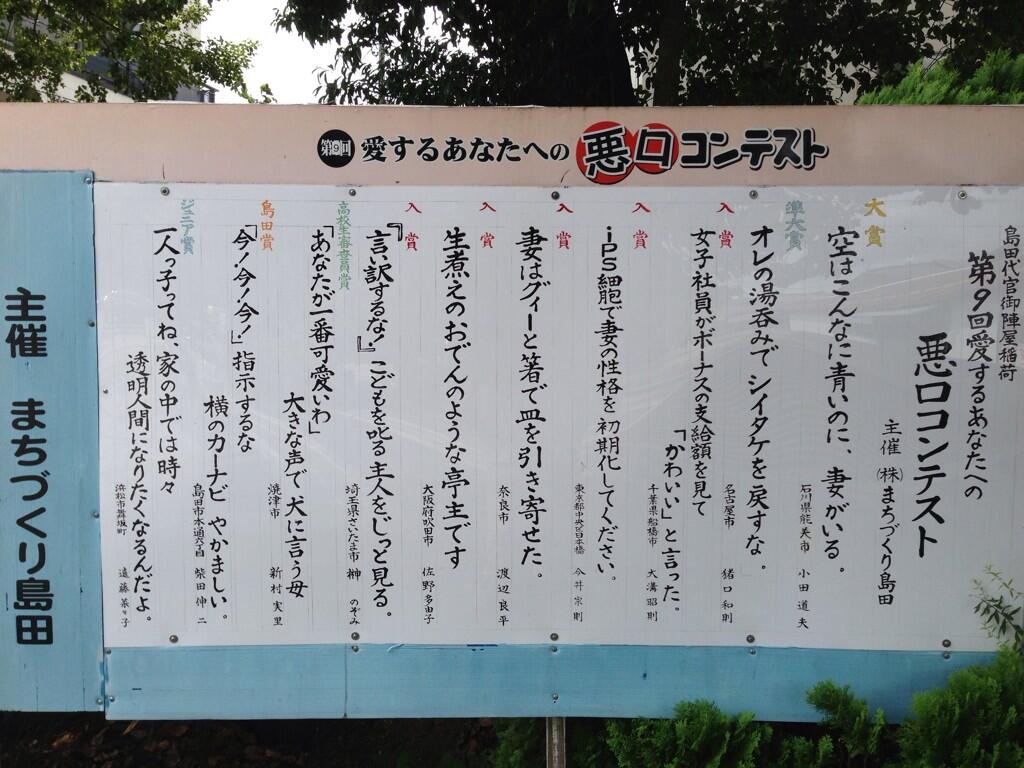 第9回 愛するあなたへの 悪口コンテスト
島田代官御陣屋稲荷
第9回愛するあなたへの
悪口コンテスト
主催 ㈱まちづくり島田
大賞
空はこんなに青いのに、妻がいる。
石川県能美市 小田 道夫
準大賞
オレの湯呑みでシイタケを戻すな。
名古屋市 猪口 和則
入賞
女子社員がボーナスの支給額を見て
「かわいい」と言った。
千葉県船橋市 大溝 昭則
入賞
iPS細胞で妻の性格を初期化してください。
東京都中央区日本橋 今井 宗則
入賞
妻はグィーと箸で皿を引き寄せた。
奈良市 渡辺 良平
入賞
生煮えのおでんのような亭主です
大阪府吹田市 佐野 多由子
入賞
『言い訳するな！』こどもを叱る主人をじっと見る。
埼玉県さいたま市 榊 のぞみ
高校生審査員賞
「あなたが一番可愛いわ」
大きな声で犬に言う母
焼津市 新村 実里
島田賞
「今！今！今！」指示するな
横のカーナビ やかましい。
島田市本通六丁目 柴田 伸二
ジュニア賞
一人っ子ってね、家の中では時々
透明人間になりたくなるんだよ。
浜松市舞坂町 遠藤 菜子
主催 まちづくり島田